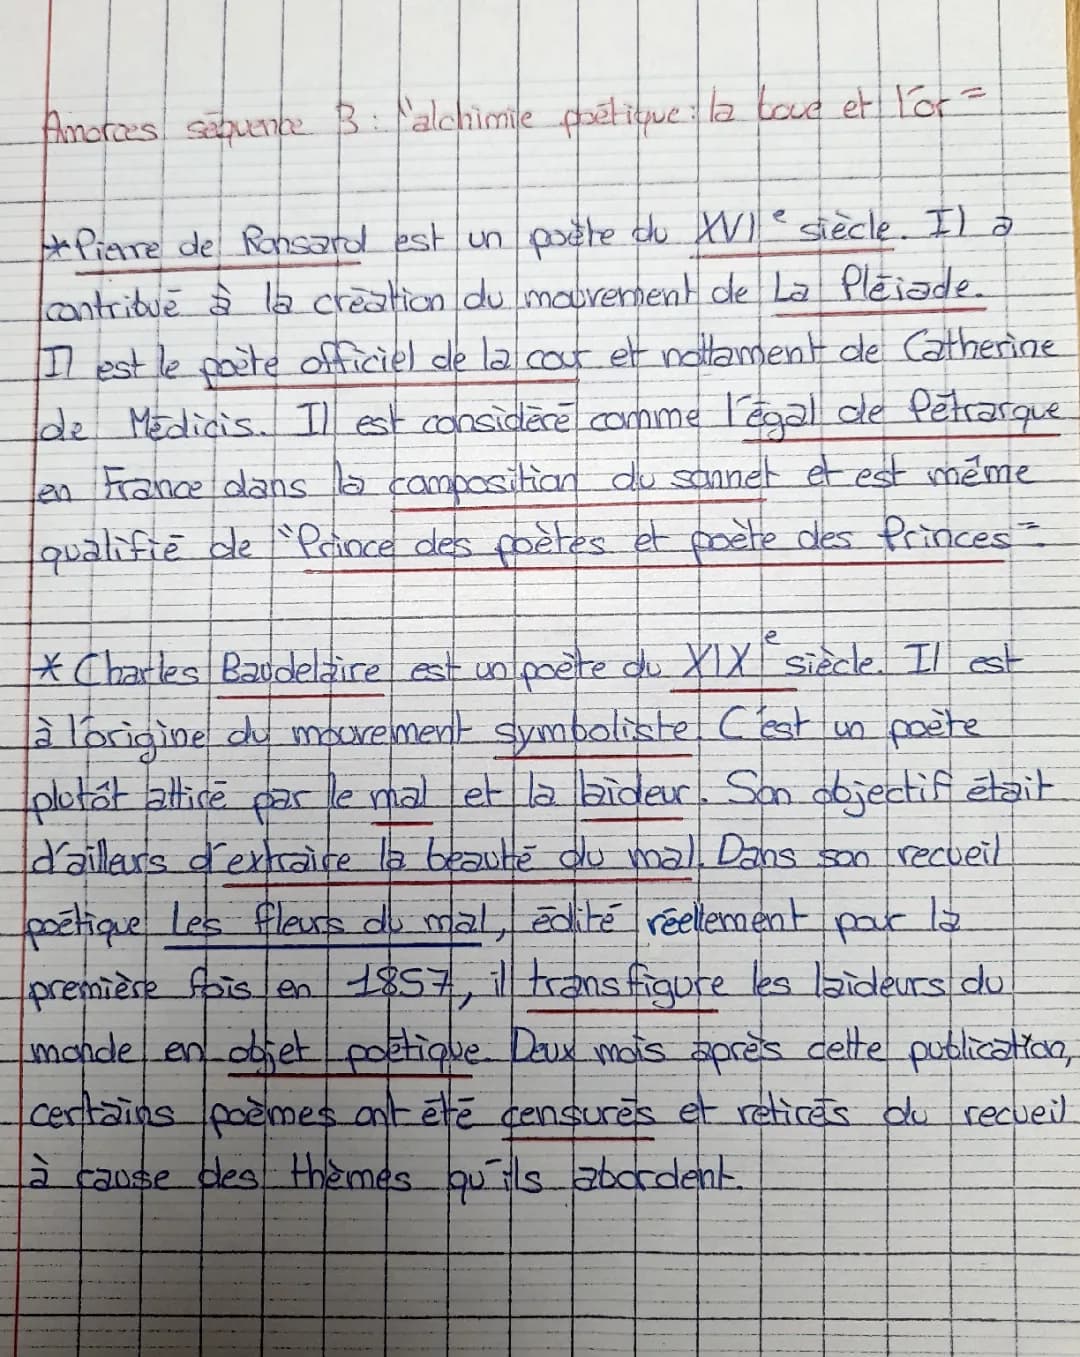 Amorces séquence 3 : l'alchimie poétique : la boue et l'or =
*Pierre de Ronsard est un poète du XVIe siècle. Il a
contribué à la création du mouvement de La Pléiade.
Il est le poète officiel de la cour et nottament de Catherine
de Médicis. Il est considéré comme l'égal de Pétrarque
en France dans la composition du sonnet et est même
qualifié de "Prince des poètes et poète des Princes"
* Charles Baudelaire est un poète du XIXe siècle. Il est
à l'origine du mouvement symboliste. C'est un poète
plutôt attiré par le mal et la laideur. Son objectif était
d'ailleurs d'extraire la beauté du mal. Dans son recueil
poétique Les fleurs du mal, édité réellement pour la
première fois en 1857, il transfigure les laideurs du
monde en objet poétique. Deux mois après cette publication,
certains poèmes ont été censurés et retirés du recueil
à cause des thèmes qu'ils abordent.